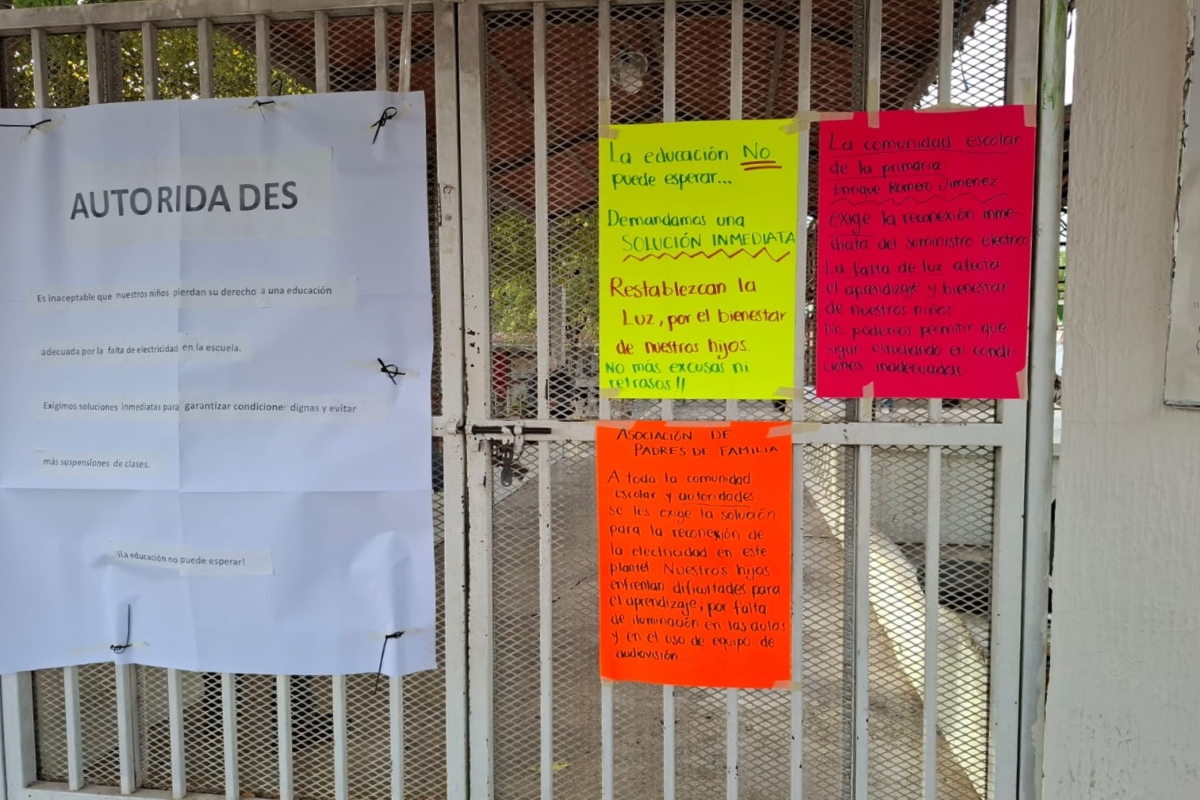 AUTORIDA DES
Es inaceptable que nuestros niños pierdan su derecho a una educación
adecuada por la falta de electricidad en la escuela.
Exigimos soluciones inmediatas para garantizar condicione dignas y evitar
más suspensiones de clases.
¡La educación no puede esperar!
La educación No
puede esperar...
Demandamos una
SOLUCIÓN INMEDIATA
Restablezcan la
Luz, por el bienestar
de nuestros hijos.
No más excusas ni
retrasos!!
La comunidad escolar
de la primaria
Enrique Romero Jimenez
exige la reconexión inme-
diata del suministro electrico
La falta de luz afecta
el aprendizaje y bienestar
de nuestros niños
No podemos permitir que
sigan estudiando en condi-
ciones inadecuadas
ASOCIACIÓN DE
PADRES DE FAMILIA
A toda la comunidad
escolar y autoridades
se les exige la solución
para la reconexión de
la electricidad en este
plantel Nuestros hijos
enfrentan dificultades para
el aprendizaje, por falta
de iluminación en las aulas
y en el uso de equipo de
audiovisión...